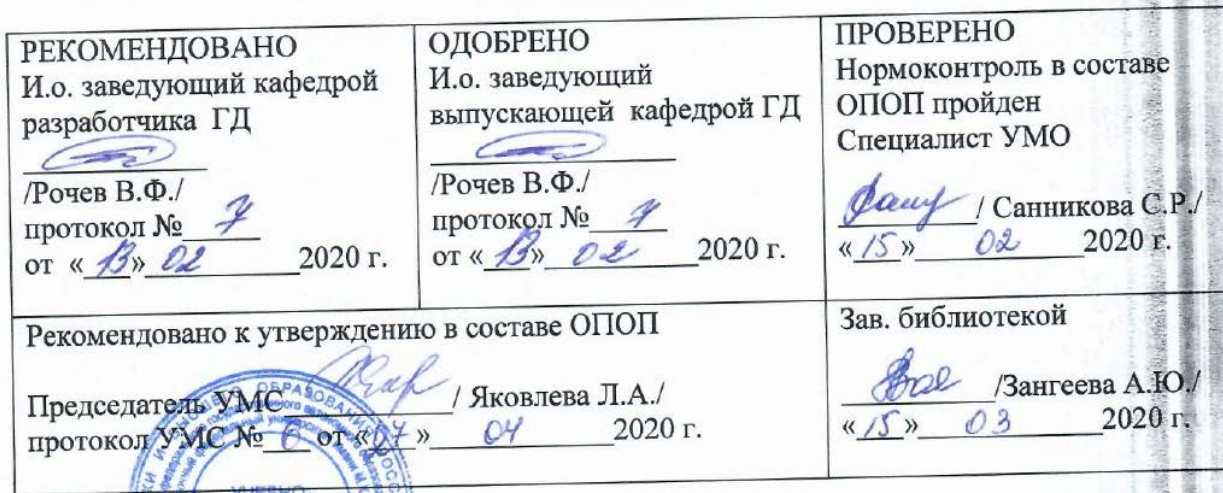 РЕКОМЕНДОВАНО
И.о. заведующий кафедрой
разработчика ГД
/Рочев В.Ф./
протокол № 7
от «13» 02 2020 г.
ОДОБРЕНО
И.о. заведующий
выпускающей кафедрой ГД
/Рочев В.Ф./
протокол № 7
от «13» 02 2020 г.
ПРОВЕРЕНО
Нормоконтроль в составе
ОПОП пройден
Специалист УМО
/ Санникова С.Р./
«15» 02 2020 г.
Рекомендовано к утверждению в составе ОПОП
Председатель УМС / Яковлева Л.А./
протокол УМС № 6 от «07» 04 2020 г.
Зав. библиотекой
/Зангеева А.Ю./
«15» 03 2020 г.
УЧЕБНО-